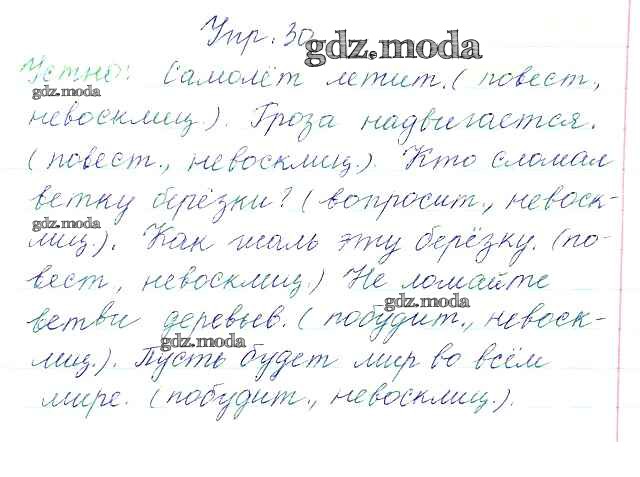 Упр. 30
gdz.moda
Устно: Самолёт летит. (повест.,
gdz.moda
невосклиц.). Гроза надвигается.
(повест., невосклиц.). Кто сломал
ветку берёзки? (вопросит., невоск-
gdz.moda
лиц.). Как жаль эту берёзку. (по-
вест, невосклиц.) Не ломайте
gdz.moda
ветви деревьев. (побудит., невоск-
gdz.moda
лиц.). Пусть будет мир во всём
мире. (побудит., невосклиц.).